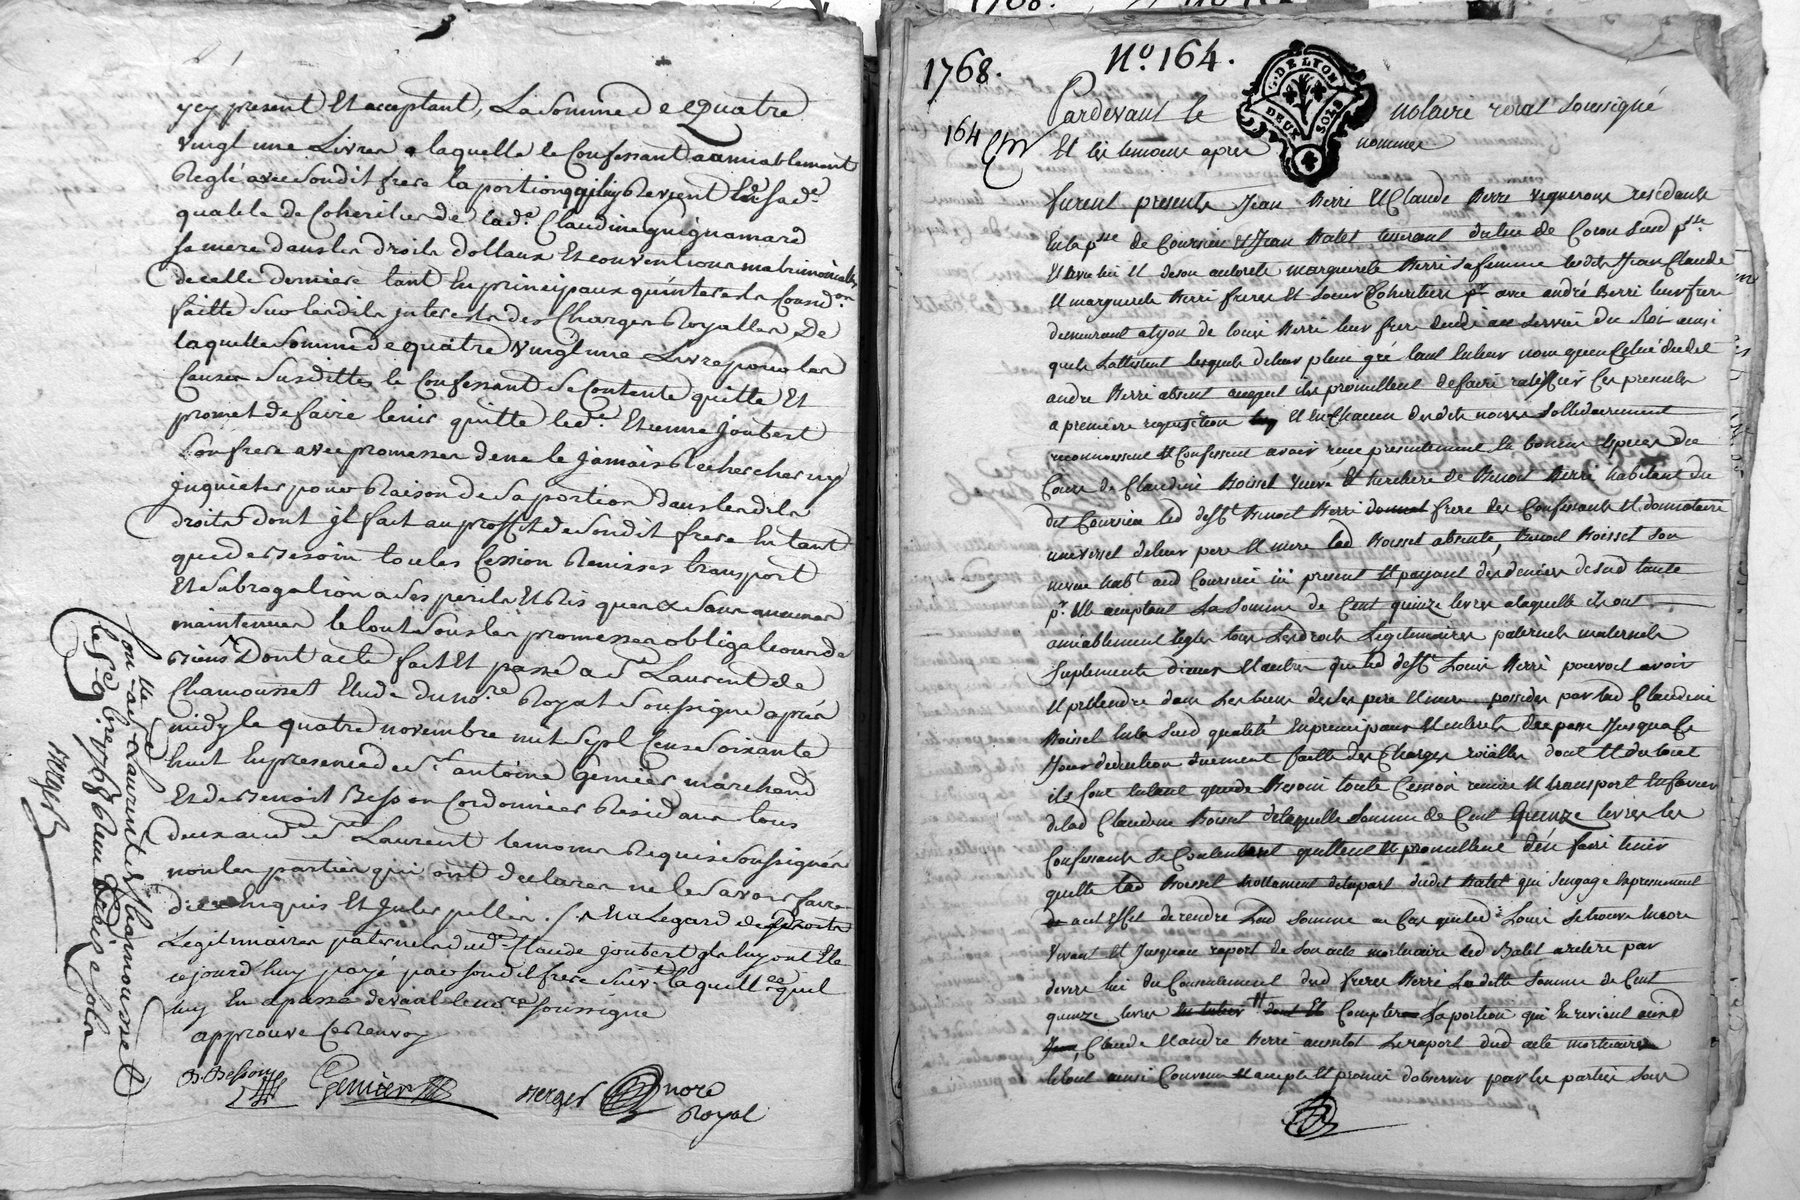 ycy present Et acceptant, La Somme de Quatre
vingt une Livres a laquelle le Confessant a amiablement
Reglé avec Sondit frere la portion qui luy Revient En sad.e
qualité de Coheritier de lad.e Claudine guignamard
sa mere dans les droits dottaux Et conventions matrimonialles
de celle derniere tant En principaux qu'interests Consid.on
faitte Sur lesdits interests des Charges Royalles, De
laquelle Somme de quatre vingt une Livre pour les
Causes Susdittes le Confessant Se Contente quitte Et
promet de faire tenir quitte led. Etienne Joubert
Son frere avec promesse de ne le jamais Rechercher ny
jnquieter pour Raison de Sa portion dans lesdits
droits dont jl fait au proffit de Sondit frere En tant
que de Besoin toutes Cession Remises transport
Et Subrogation a Ses perils Et Ris
maintenues le tout Sous les promesses obligations de
Biens Dont acte fait Et passé a S.t Laurent de
Chamousset Etude du no.re Royal Soussigné apres
midy le quatre novembre mil Sept Cens Soixante
huit En presence de S.r antoine Genier marchand
Et de Benoit Besson Cordonnier Residans tous
deux aud. S.t Laurent temoins Requis Soussignés
non les parties qui ont declarer ne le Scavoir faire
de ce Enquis Et Interpellés. A l'Egard des droits
Legitimaires paternels dud. Claude Joubert jls luy ont Eté
cejourd'huy payé par Sondit frere Suiv.t la quittce quil
luy En a passé devant le no.re Soussigné
approuvé Ce Renvoy
B. Besson
Genier
Berger
nore
Royal
Con.lle a S.t Laurent de Chamousset
le 9. 9bre 1768 Reçu treize Sols
Berger
1768.
N.o 164.
164
G. DE LYON
DEUX SOLS
Pardevant le notaire roial soussigné
Et les temoins apres nommés
furent presents Jean Berri Et Claude Berri vignerons residants
En la p.sse de Courzieu Et Jean Balet tisserant du lieu de Coron Susd p.sse
Et avec lui Et de son autorité marguerite Berri sa femme lesdits Jean Claude
Et marguerite Berri freres Et soeur Coheritiers avec andré Berri leur frere
demeurant a Lyon de Louis Berri leur frere decedé au service du Roi ainsi
quils l'attestent lesquels de leur plein gré tant En leur nom qu'en celui dudit
andre Berri absent auquel ils promettent de faire ratiffier Ces presentes
a premiere requisition Et En Chacun desdits noms sollidairement
reconnoissent Et Confessent avoir reçu presentement En bonnes Especes du
Cours de Claudine Boisset veuve Et heritiere de Benoit Berri habitant dud
dit Courzieu led deft Benoit Berri frere des Confessants Et donnataire
universel de leur pere Et mere lad Boisset absente, Benoit Boisset son
neveu hab.t aud Courzieu ici present Et payant des deniers de sad tante
Et acceptant La Somme de Cent quinze livres a laquelle ils ont
amiablement reglés tous Les droits Legitimaires paternels maternels
suplements d'iceux Et autres que led deft Louis Berri pouvoit avoir
Et pretendre dans Les biens desdits pere Et mere possedés par lad Claudine
Boisset En la Susd qualité En principaux Et interets du passé Jusqua Ce
Jour deduction duement faitte des Charges roialles dont Et du tout
ils font Entant que de Besoin toute Cession remise Et transport En faveur
de lad Claudine Boisset de laquelle Somme de Cent quinze livres les
Confessants se Contentent quittent Et promettent d'en faire tenir
quitte lad Boisset nottament de la part dudit Balet qui s'engage Expressement
a cet Effet de rendre Lad Somme au Cas que led Louis se trouve Encore
vivant Et Jusquau raport de son acte mortuaire led Balet
devers lui du Consentement dud freres Berri Laditte Somme de Cent
quinze livres Compter la portion qui En revient
Claude Et andre Berri aussitot Le raport dud acte mortuaire
le tout ainsi Convenu Et accepté Et promis d'observer par les parties sous